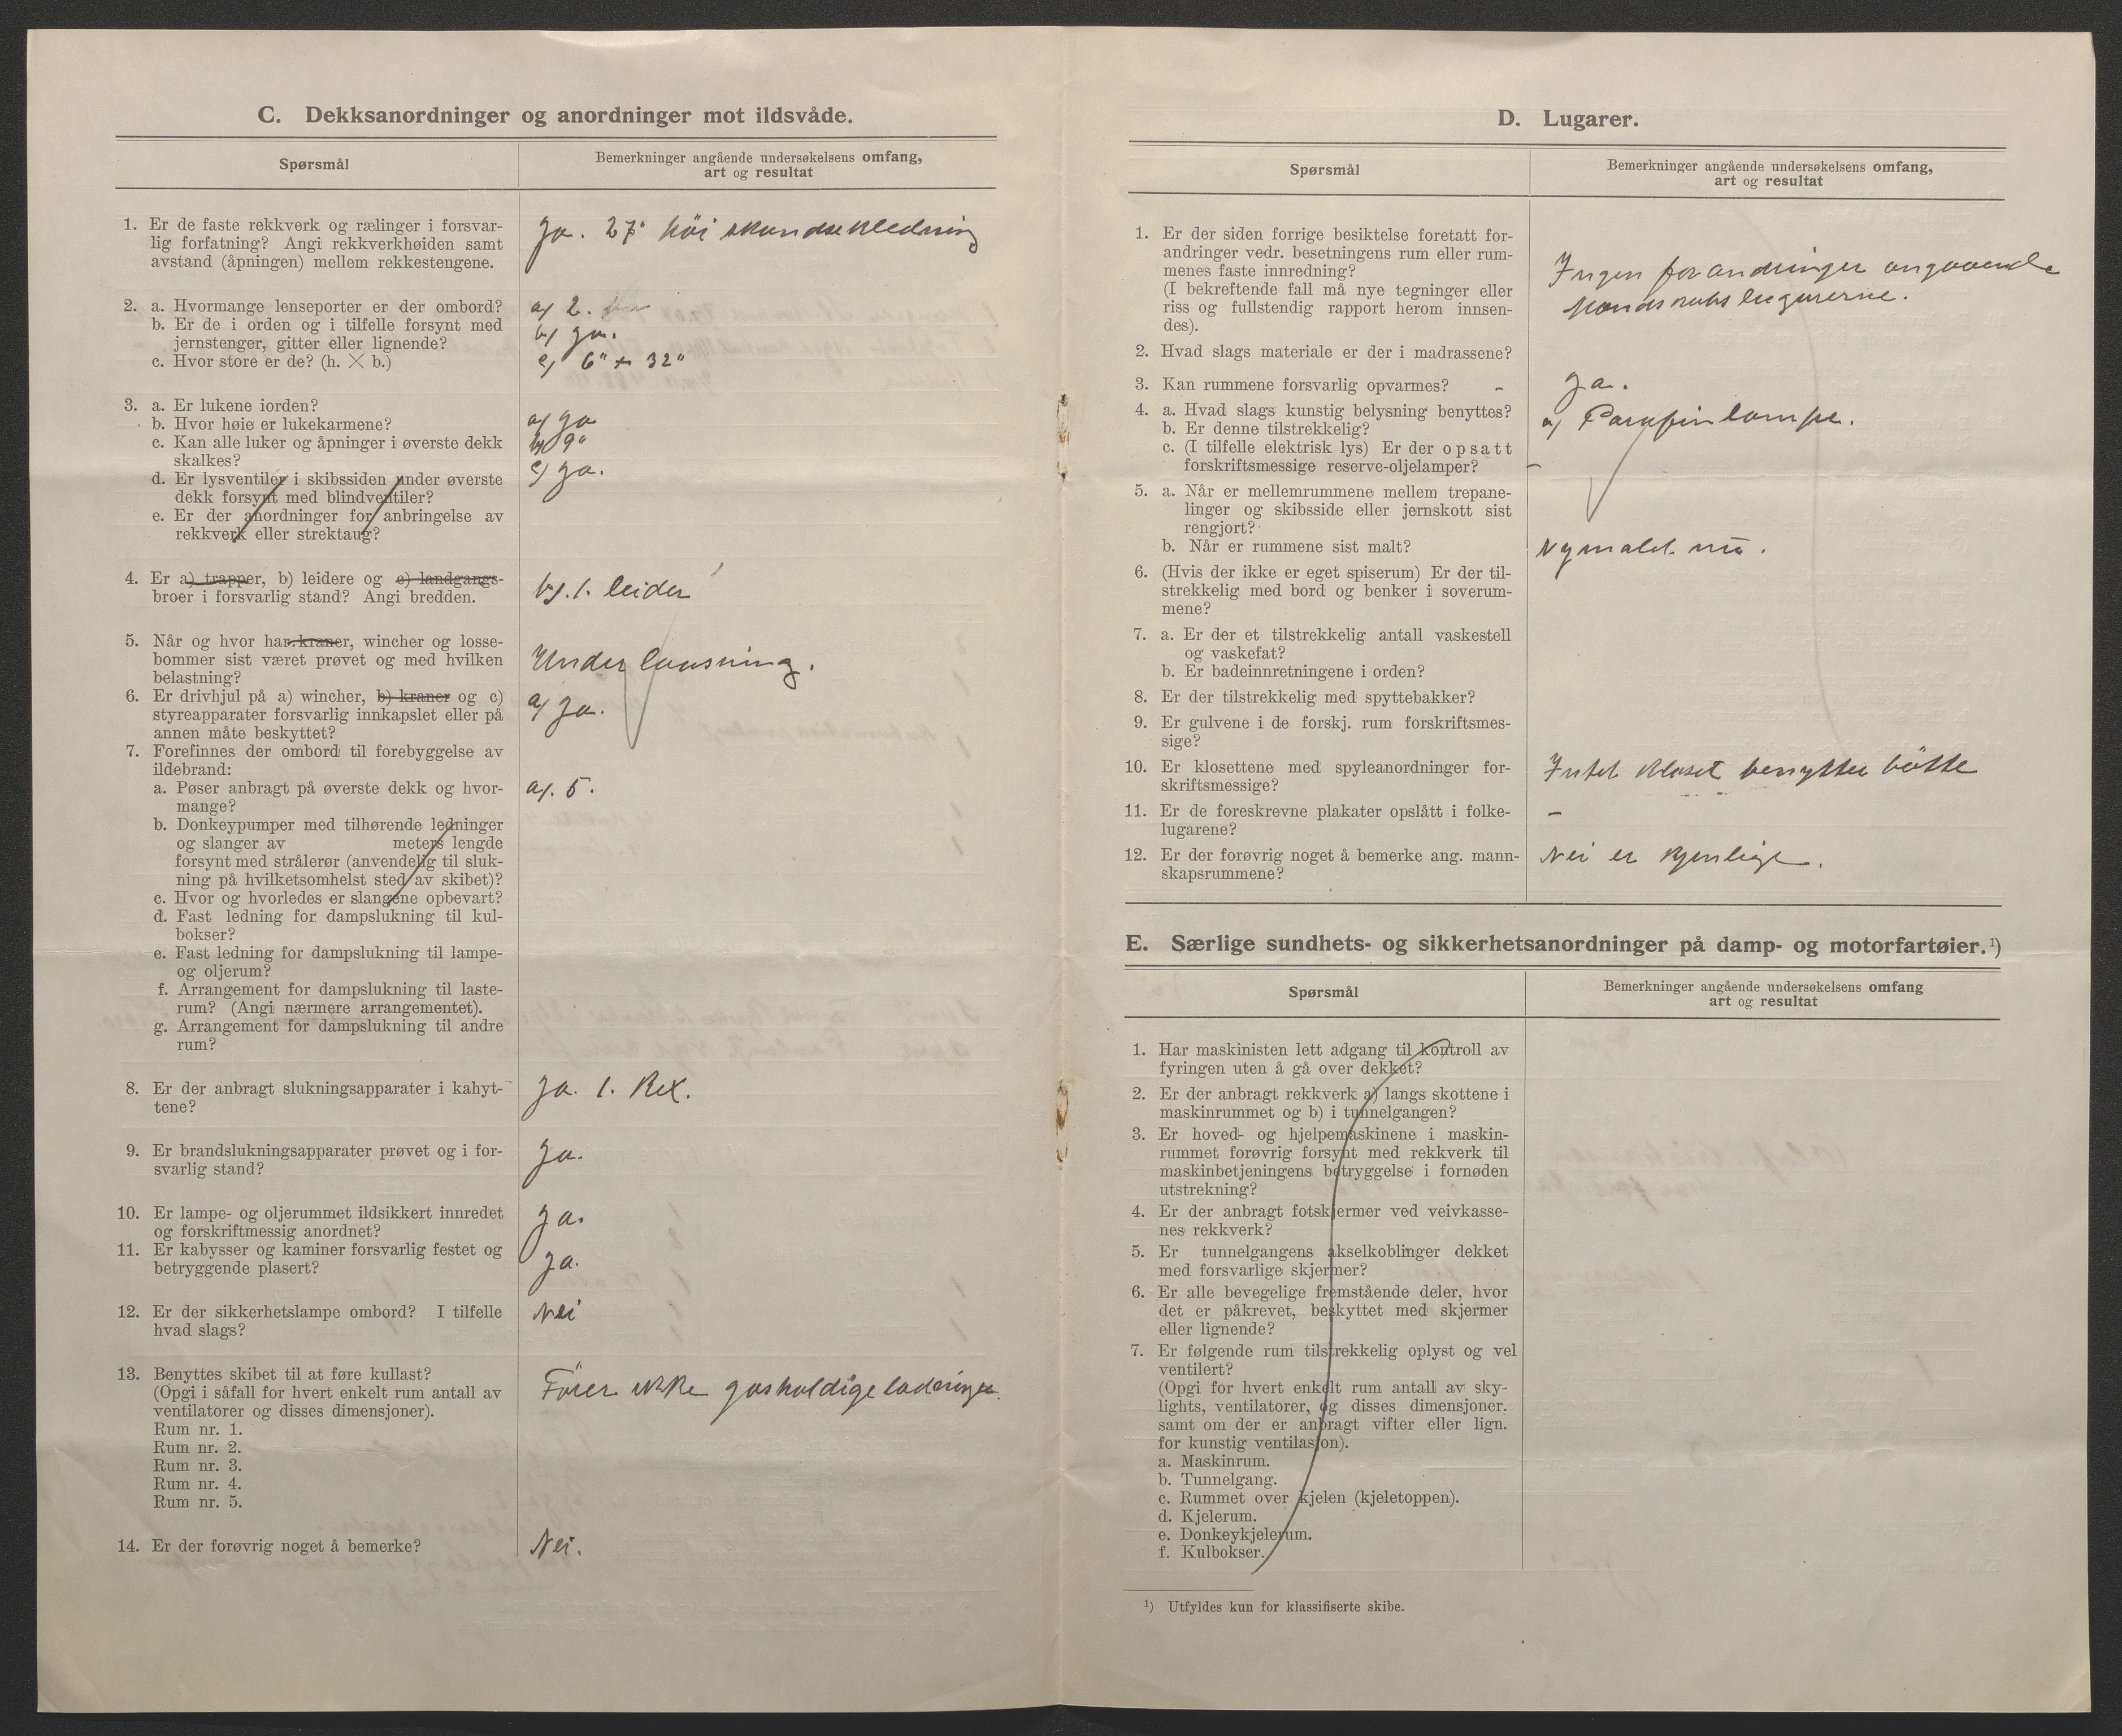 C. Dekksanordninger og anordninger mot ildsvåde.
Spørsmål
Bemerkninger angående undersøkelsens omfang,
art og resultat
1. Er de faste rekkverk og rælinger i forsvar-
lig forfatning? Angi rekkverkhøiden samt
avstand (åpningen) mellem rekkestengene.
Ja. 27" höi skandsekledning
2. a. Hvormange lenseporter er der ombord?
a) 2.
b. Er de i orden og i tilfelle forsynt med
jernstenger, gitter eller lignende?
b) ja.
c. Hvor store er de? (h. × b.)
c) 6" + 32"
3. a. Er lukene iorden?
a) ja
b. Hvor høie er lukekarmene?
b) 9"
c. Kan alle luker og åpninger i øverste dekk
skalkes?
c) ja.
d. Er lysventiler i skibssiden under øverste
dekk forsynt med blindventiler?
e. Er der anordninger for anbringelse av
rekkverk eller strektaug?
4. Er a) trapper, b) leidere og c) landgangs-
broer i forsvarlig stand? Angi bredden.
b). 1. leider
5. Når og hvor har kraner, wincher og losse-
bommer sist været prøvet og med hvilken
belastning?
Under lausning.
6. Er drivhjul på a) wincher, b) kraner og c)
styreapparater forsvarlig innkapslet eller på
annen måte beskyttet?
a) ja.
7. Forefinnes der ombord til forebyggelse av
ildebrand:
a. Pøser anbragt på øverste dekk og hvor-
mange?
a). 5.
b. Donkeypumper med tilhørende ledninger
og slanger av meters lengde
forsynt med strålerør (anvendelig til sluk-
ning på hvilketsomhelst sted av skibet)?
c. Hvor og hvorledes er slangene opbevart?
d. Fast ledning for dampslukning til kul-
bokser?
e. Fast ledning for dampslukning til lampe-
og oljerum?
f. Arrangement for dampslukning til laste-
rum? (Angi nærmere arrangementet).
g. Arrangement for dampslukning til andre
rum?
8. Er der anbragt slukningsapparater i kahyt-
tene?
Ja. 1. Rex.
9. Er brandslukningsapparater prøvet og i for-
svarlig stand?
Ja.
10. Er lampe- og oljerummet ildsikkert innredet
og forskriftmessig anordnet?
Ja.
11. Er kabysser og kaminer forsvarlig festet og
betryggende plasert?
Ja.
12. Er der sikkerhetslampe ombord? I tilfelle
hvad slags?
Nei
13. Benyttes skibet til at føre kullast?
(Opgi i såfall for hvert enkelt rum antall av
ventilatorer og disses dimensjoner).
Förer ikke gasholdige ladninger.
Rum nr. 1.
Rum nr. 2.
Rum nr. 3.
Rum nr. 4.
Rum nr. 5.
14. Er der forøvrig noget å bemerke?
Nei.
D. Lugarer.
Spørsmål
Bemerkninger angående undersøkelsens omfang,
art og resultat
1. Er der siden forrige besiktelse foretatt for-
andringer vedr. besetningens rum eller rum-
menes faste innredning?
(I bekreftende fall må nye tegninger eller
riss og fullstendig rapport herom innsen-
des).
Ingen forandringer angaaende
Mandskabslugarerne.
2. Hvad slags materiale er der i madrassene?
3. Kan rummene forsvarlig opvarmes? -
Ja.
4. a. Hvad slags kunstig belysning benyttes?
a) Parafinlampe.
b. Er denne tilstrekkelig?
c. (I tilfelle elektrisk lys) Er der opsatt
forskriftsmessige reserve-oljelamper?
-
5. a. Når er mellemrummene mellem trepane-
linger og skibsside eller jernskott sist
rengjort?
b. Når er rummene sist malt?
Nymalet nu.
6. (Hvis der ikke er eget spiserum) Er der til-
strekkelig med bord og benker i soverum-
mene?
7. a. Er der et tilstrekkelig antall vaskestell
og vaskefat?
b. Er badeinnretningene i orden?
8. Er der tilstrekkelig med spyttebakker?
9. Er gulvene i de forskj. rum forskriftsmes-
sige?
10. Er klosettene med spyleanordninger for-
skriftsmessige?
Intet Kloset benyttes bötte
11. Er de foreskrevne plakater opslått i folke-
lugarene?
-
12. Er der forøvrig noget å bemerke ang. mann-
skapsrummene?
Nei er kjenlige.
E. Særlige sundhets- og sikkerhetsanordninger på damp- og motorfartøier.¹)
Spørsmål
Bemerkninger angående undersøkelsens omfang
art og resultat
1. Har maskinisten lett adgang til kontroll av
fyringen uten å gå over dekket?
2. Er der anbragt rekkverk a) langs skottene i
maskinrummet og b) i tunnelgangen?
3. Er hoved- og hjelpemaskinene i maskin-
rummet forøvrig forsynt med rekkverk til
maskinbetjeningens betryggelse i fornøden
utstrekning?
4. Er der anbragt fotskjermer ved veivkasse-
nes rekkverk?
5. Er tunnelgangens akselkoblinger dekket
med forsvarlige skjermer?
6. Er alle bevegelige fremstående deler, hvor
det er påkrevet, beskyttet med skjermer
eller lignende?
7. Er følgende rum tilstrekkelig oplyst og vel
ventilert?
(Opgi for hvert enkelt rum antall av sky-
lights, ventilatorer, og disses dimensjoner.
samt om der er anbragt vifter eller lign.
for kunstig ventilasjon).
a. Maskinrum.
b. Tunnelgang.
c. Rummet over kjelen (kjeletoppen).
d. Kjelerum.
e. Donkeykjelerum.
f. Kulbokser.
¹) Utfyldes kun for klassifiserte skibe.